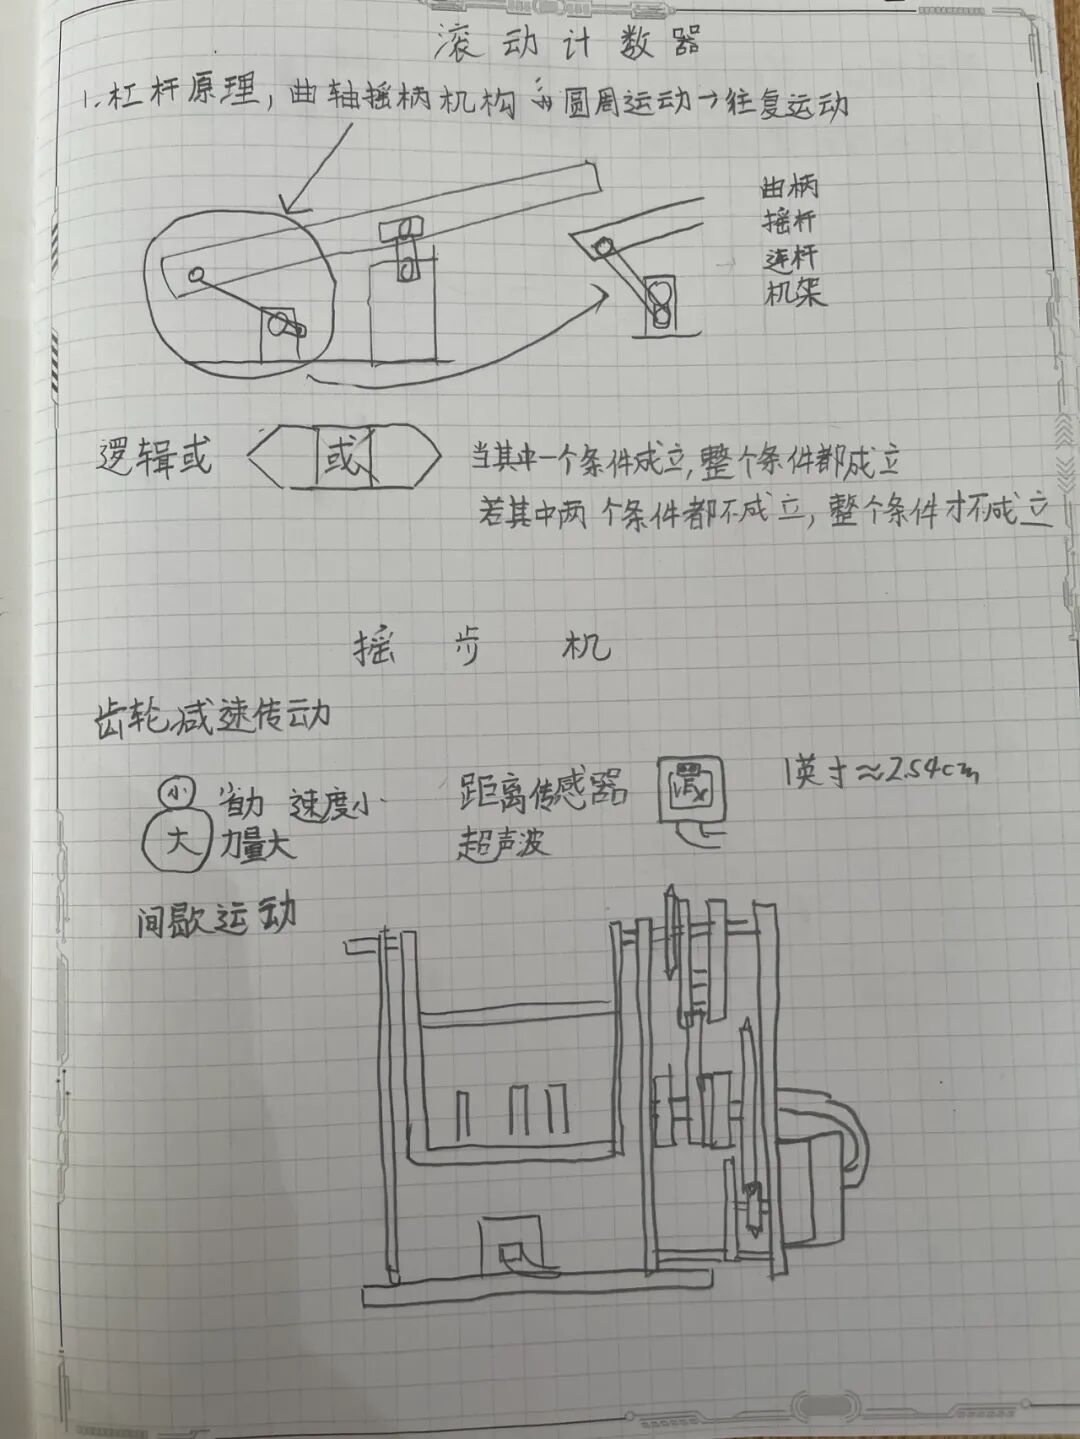 滚动计数器
1.杠杆原理，曲轴摇柄机构 圆周运动→往复运动
曲柄
摇杆
连杆
机架
逻辑或
或
当其中一个条件成立，整个条件都成立
若其中两个条件都不成立，整个条件才不成立
摇步机
齿轮减速传动
小
大
省力 速度小
力量大
距离传感器
超声波
VEX
1英寸≈2.54cm
间歇运动